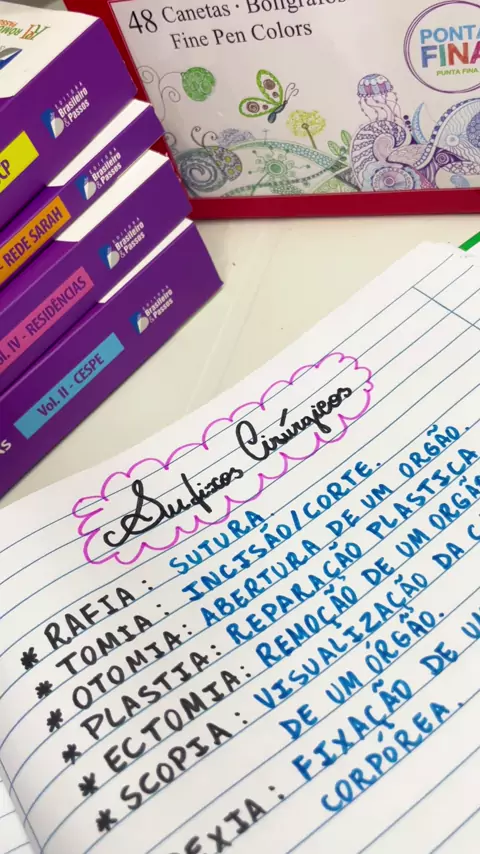 48 Canetas · Bolígrafos
Fine Pen Colors
PONTA
FINA
PUNTA FINA
EDITORA
Brasileiro
& Passos
EDITORA
Brasileiro
& Passos
- REDE SARAH
EDITORA
Brasileiro
& Passos
Vol. IV - RESIDÊNCIAS
EDITORA
Brasileiro
& Passos
Vol. II - CESPE
Sufixos Cirúrgicos
* RAFIA: SUTURA.
* TOMIA: INCISÃO/CORTE.
* OTOMIA: ABERTURA DE UM ORGÃO.
* PLASTIA: REPARAÇÃO PLASTICA
* ECTOMIA: REMOÇÃO DE UM ORGÃO
* SCOPIA: VISUALIZAÇÃO DA
DE UM ÓRGÃO.
EXIA: FIXAÇÃO DE
CORPÓREA.